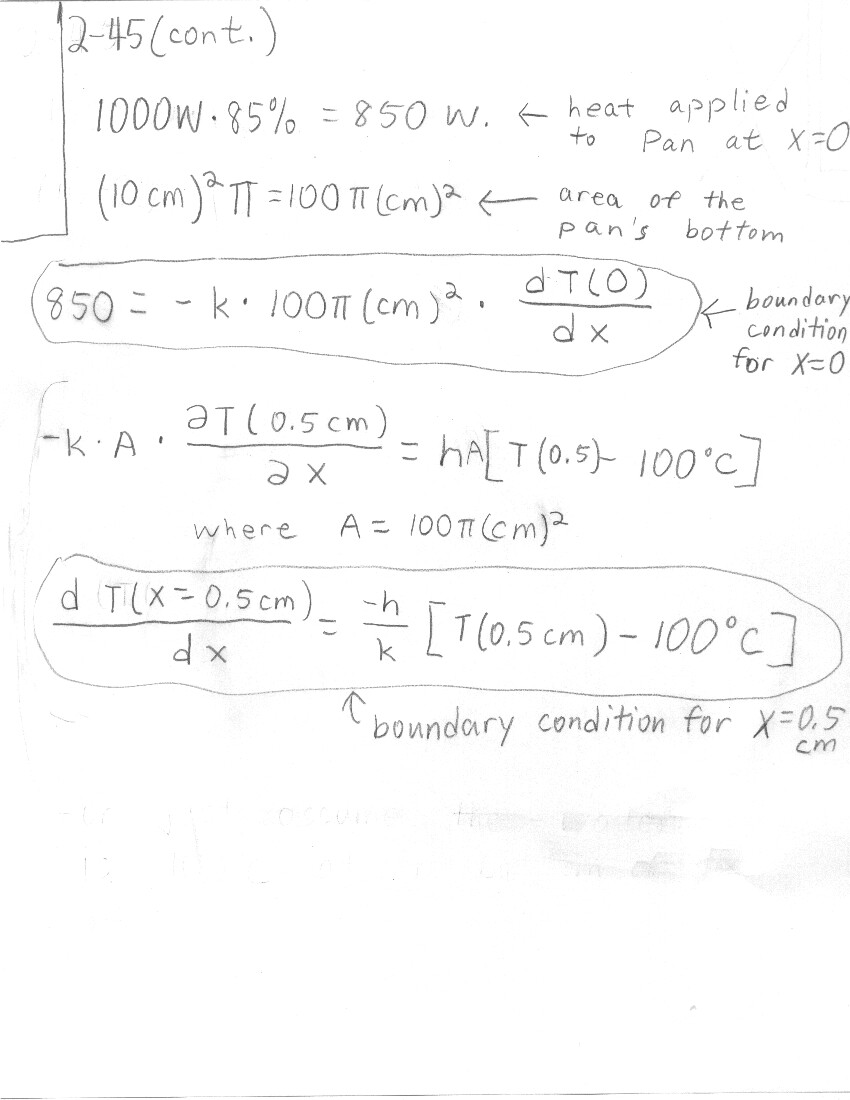 2-45(cont.)
1000W · 85% = 850 W. ← heat applied
to Pan at X=0
(10 cm)² π = 100 π (cm)² ← area of the
pan's bottom
850 = - k · 100π (cm)² · dT(0)/dx ← boundary
condition
for X=0
-k · A · ∂T(0.5cm)/∂x = hA[T(0.5)- 100°C]
where A = 100π(cm)²
d T(X=0.5cm)/dx = -h/k [T(0.5cm) - 100°C]
↑ boundary condition for X=0.5
cm